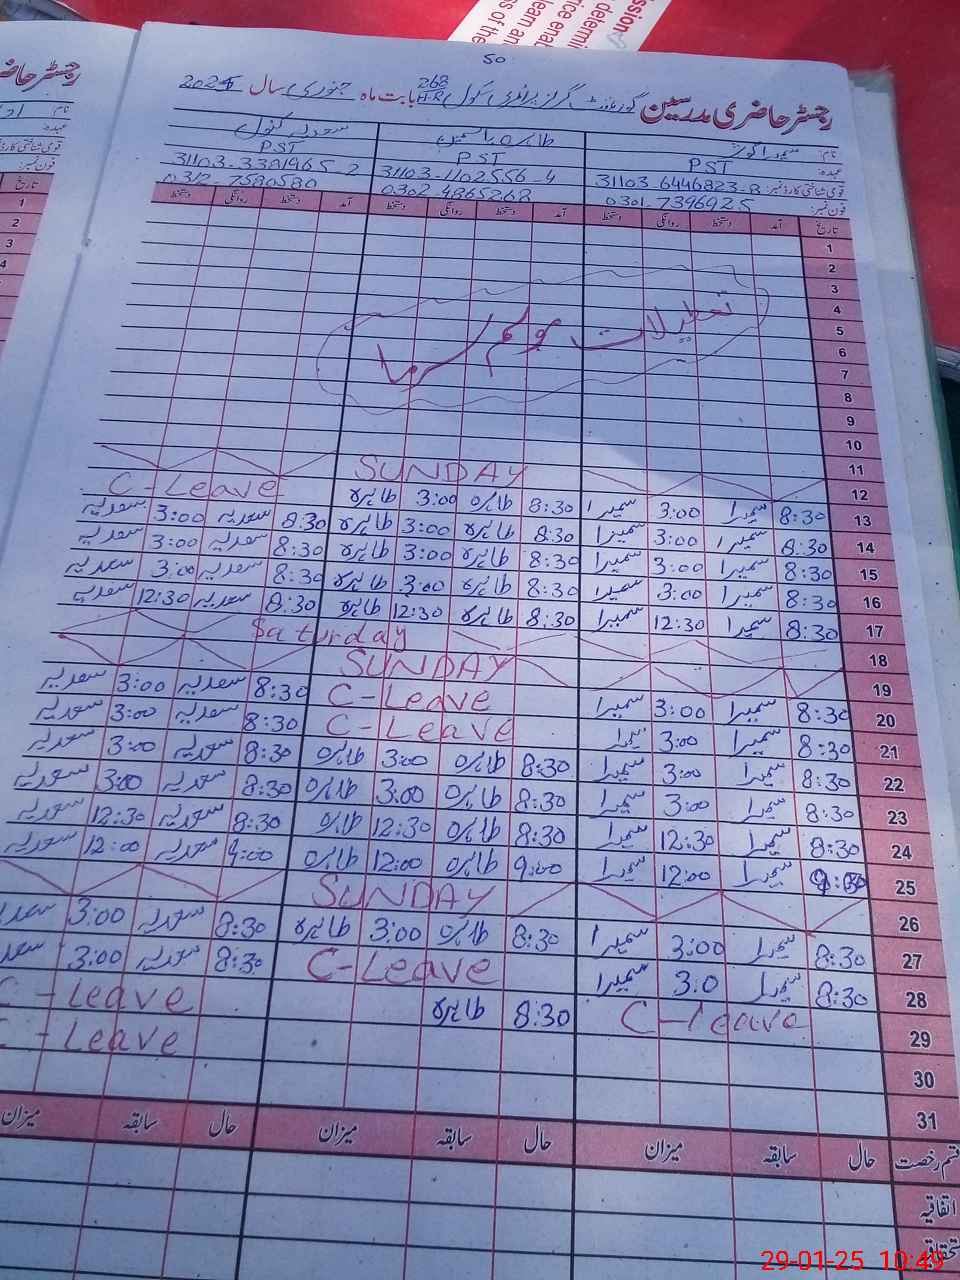 50
رجسٹر حاضری مدرسین گورنمنٹ گرلز پرائمری سکول 268 H-R بابت ماہ جنوری سال 2025
نام: سمیرا کوثر طاہرہ یاسمین سعدیہ کنول
عہدہ: PST PST PST
قومی شناختی کارڈ نمبر: 31103-6446823-8 31103-1102556-4 31103-3381965-2
فون نمبر: 0301-7396925 0302-4865268 0312-7580580
تاریخ آمد دستخط روانگی دستخط آمد دستخط روانگی دستخط آمد دستخط روانگی دستخط
1
2
3
4
5
6
7
8
9
10
تعطیلات موسم سرما
11
12 SUNDAY
13 8:30 سمیرا 3:00 سمیرا 8:30 طاہرہ 3:00 طاہرہ C-Leave
14 8:30 سمیرا 3:00 سمیرا 8:30 طاہرہ 3:00 طاہرہ 8:30 سعدیہ 3:00 سعدیہ
15 8:30 سمیرا 3:00 سمیرا 8:30 طاہرہ 3:00 طاہرہ 8:30 سعدیہ 3:00 سعدیہ
16 8:30 سمیرا 3:00 سمیرا 8:30 طاہرہ 3:00 طاہرہ 8:30 سعدیہ 3:00 سعدیہ
17 8:30 سمیرا 12:30 سمیرا 8:30 طاہرہ 12:30 طاہرہ 8:30 سعدیہ 12:30 سعدیہ
18 Saturday
19 SUNDAY
20 8:30 سمیرا 3:00 سمیرا C-Leave 8:30 سعدیہ 3:00 سعدیہ
21 8:30 سمیرا 3:00 سمیرا C-Leave 8:30 سعدیہ 3:00 سعدیہ
22 8:30 سمیرا 3:00 سمیرا 8:30 طاہرہ 3:00 طاہرہ 8:30 سعدیہ 3:00 سعدیہ
23 8:30 سمیرا 3:00 سمیرا 8:30 طاہرہ 3:00 طاہرہ 8:30 سعدیہ 3:00 سعدیہ
24 8:30 سمیرا 12:30 سمیرا 8:30 طاہرہ 12:30 طاہرہ 8:30 سعدیہ 12:30 سعدیہ
25 9:00 سمیرا 12:00 سمیرا 9:00 طاہرہ 12:00 طاہرہ 9:00 سعدیہ 12:00 سعدیہ
26 SUNDAY
27 8:30 سمیرا 3:00 سمیرا 8:30 طاہرہ 3:00 طاہرہ 8:30 سعدیہ 3:00
28 8:30 سمیرا 3:0 سمیرا C-Leave 8:30 سعدیہ 3:00
29 C-leave 8:30 طاہرہ C-Leave
30 C-Leave
31
قسم رخصت حال سابقہ میزان حال سابقہ میزان حال سابقہ میزان
اتفاقیہ
29-01-25 10:49